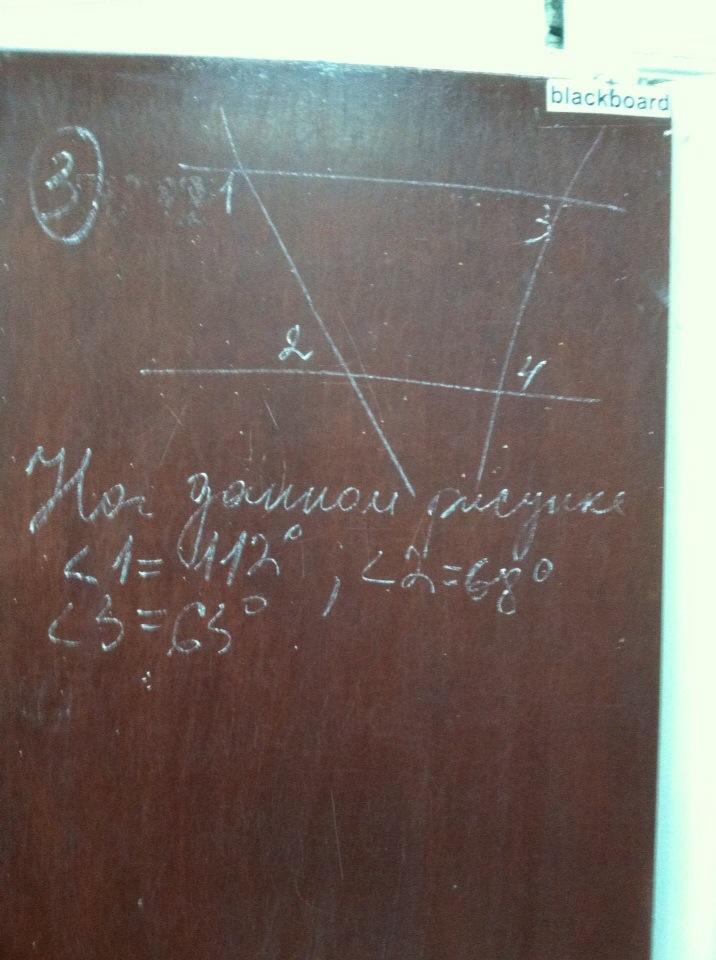 blackboard
3
1
3
2
4
На данном рисунке
<1 = 112° ; <2 = 68°
<3 = 63°